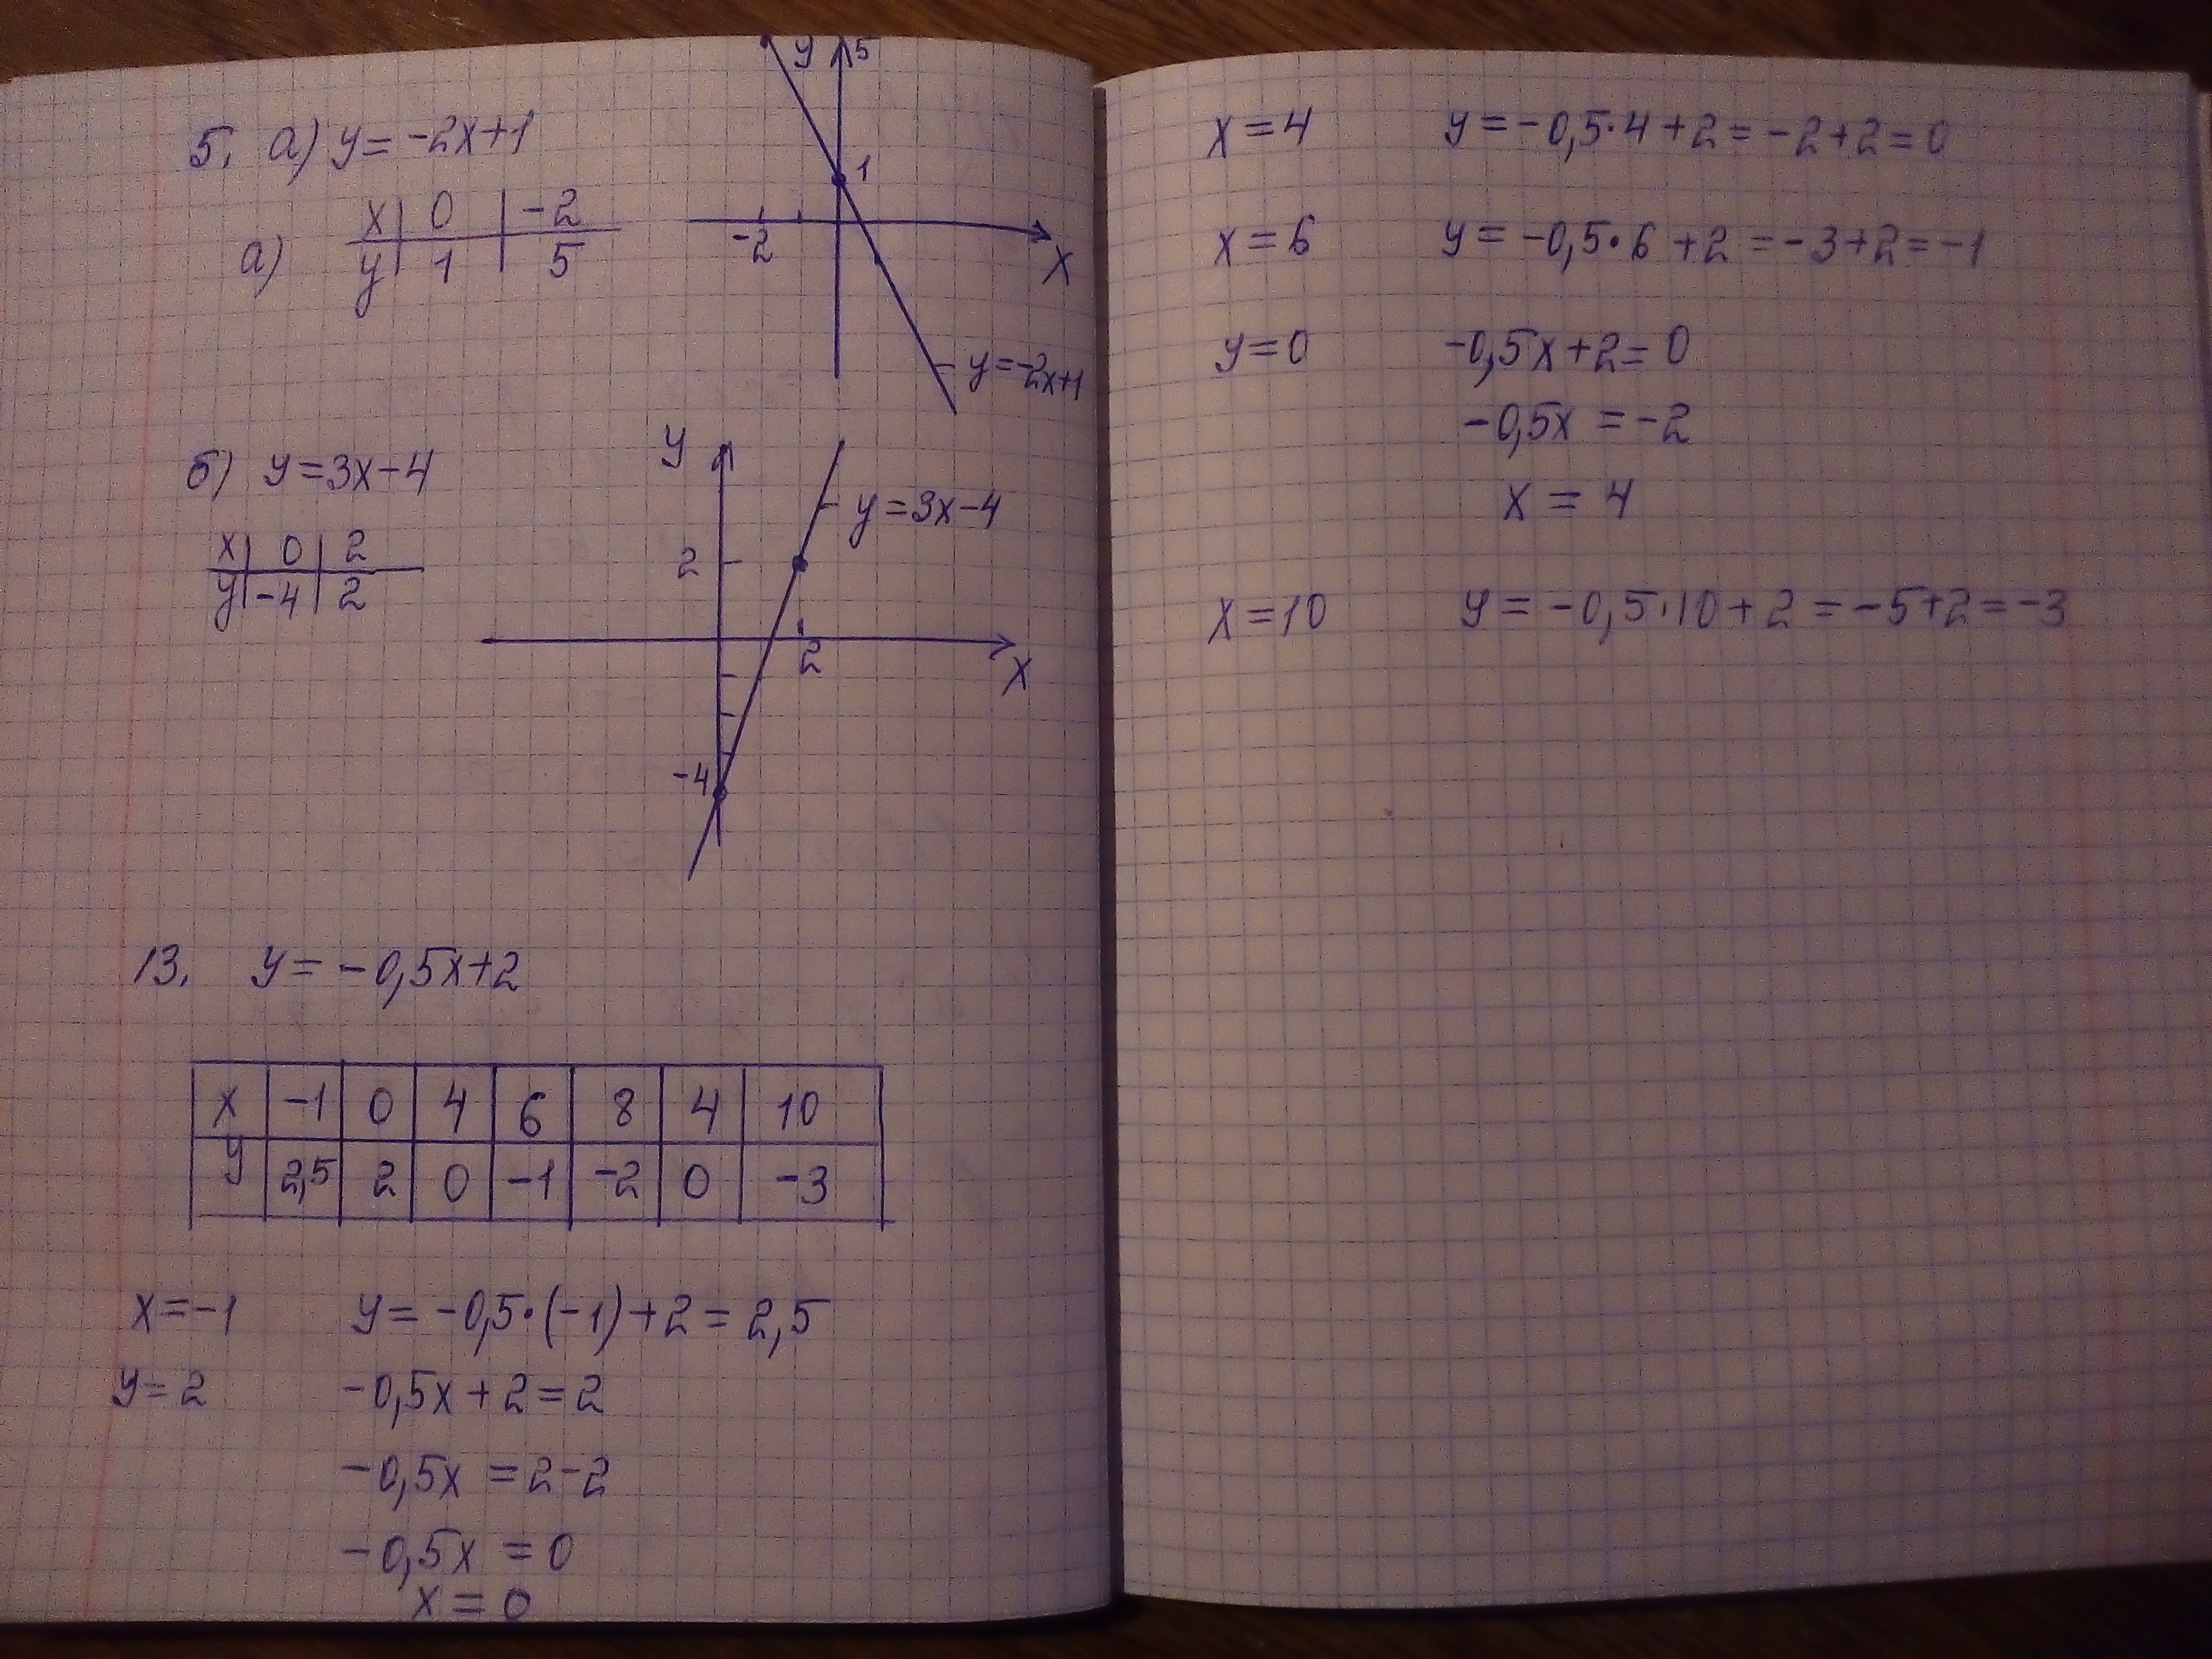 5. а) y = -2x+1
а)
x | 0 | -2
y | 1 | 5
y 5
1
-2
x
y = -2x+1
б) y = 3x-4
x | 0 | 2
y | -4 | 2
y
y = 3x-4
2
2
x
-4
13. y = -0,5x+2
x | -1 | 0 | 4 | 6 | 8 | 4 | 10
y | 2,5 | 2 | 0 | -1 | -2 | 0 | -3
x = -1 y = -0,5·(-1)+2 = 2,5
y = 2 -0,5x + 2 = 2
-0,5x = 2-2
-0,5x = 0
x = 0
x = 4 y = -0,5·4+2 = -2+2 = 0
x = 6 y = -0,5·6+2 = -3+2 = -1
y = 0 -0,5x+2 = 0
-0,5x = -2
x = 4
x = 10 y = -0,5·10+2 = -5+2 = -3